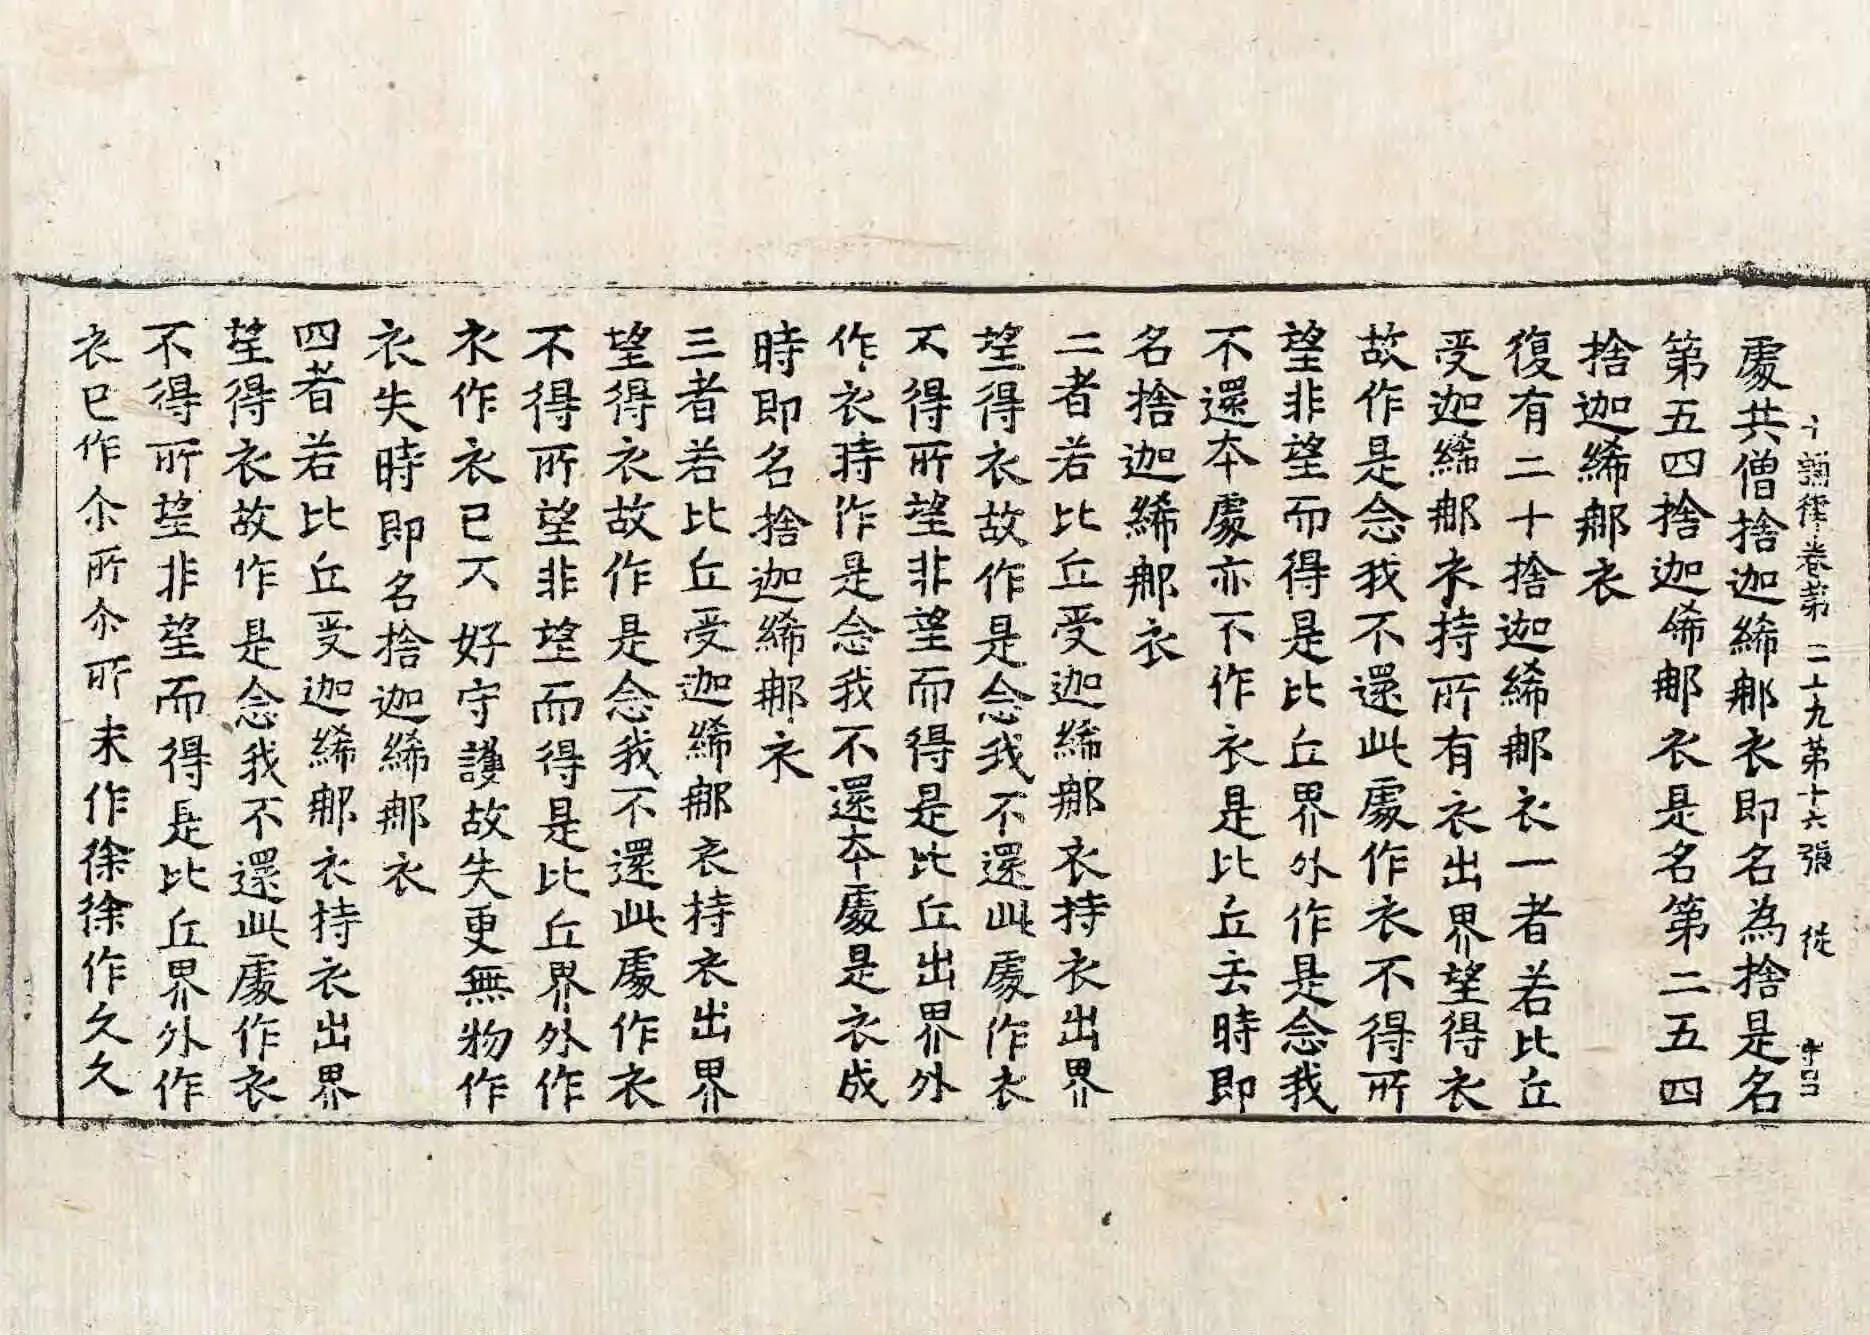 十誦律卷第二十九第十六張 從
處共僧捨迦絺那衣即名為捨是名
第五四捨迦絺那衣是名第二五四
捨迦絺那衣
復有二十捨迦絺那衣一者若比丘
受迦絺那衣持所有衣出界望得衣
故作是念我不還此處作衣不得所
望非望而得是比丘界外作是念我
不還本處亦不作衣是比丘去時即
名捨迦絺那衣
二者若比丘受迦絺那衣持衣出界
望得衣故作是念我不還此處作衣
不得所望非望而得是比丘出界外
作衣時作是念我不還本處是衣成
時即名捨迦絺那衣
三者若比丘受迦絺那衣持衣出界
望得衣故作是念我不還此處作衣
不得所望非望而得是比丘界外作
衣作衣已不好守護故失更無物作
衣失時即名捨迦絺那衣
四者若比丘受迦絺那衣持衣出界
望得衣故作是念我不還此處作衣
不得所望非望而得是比丘界外作
衣已作尒所尒所未作徐徐作久久